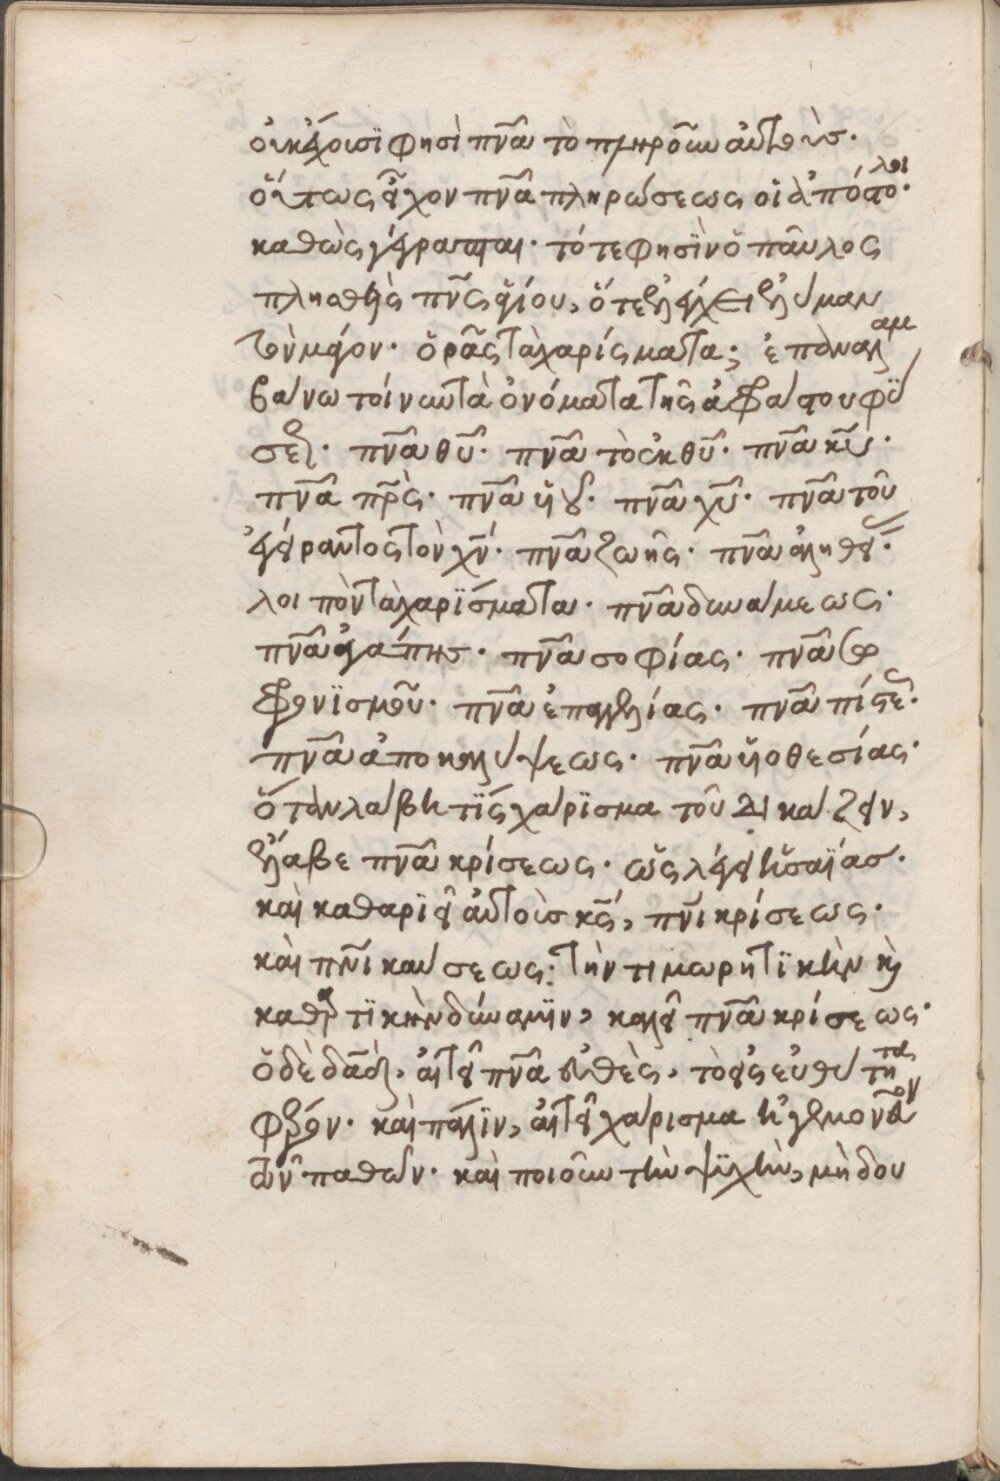 οἰκέροισϊ φησὶ πνᾶ τὸ πληροῦν αὐτοὺσ.
οὕτως εἶχον πνᾶ πληρώσεως οἱ ἀπόστολοι.
καθὼς γέγραπται. τότε φησῒν ὁ παῦλος
πλησθεὶς πνς ἁγίου, ὅτε ἐλέγχει ἐλύμαν
τὸν μάγον. ὁρᾶς τὰ χαρίσματα; ἐπαναλαμ
βάνω τοίνυν τὰ ὀνόματα τῆς ἀφράστου φύ
σεως. πνᾶ θῦ. πνᾶ τὸ ἐκ θῦ. πνᾶ κῦ.
πνᾶ πρς. πνᾶ υἱοῦ. πνᾶ χῦ. πνᾶ τοῦ
ἐγείραντος τὸν χν. πνᾶ ζωῆς. πνᾶ ἀληθείας.
λοιπὸν τὰ χαρΐσματα. πνᾶ δυνάμεως.
πνᾶ ἀγάπησ. πνᾶ σοφίας. πνᾶ σω
φρονϊσμοῦ. πνᾶ ἐπαγγελίας. πνᾶ πίστεως.
πνᾶ ἀποκαλύψεως. πνᾶ υἱοθεσίας.
ὅταν λάβη τῒς χάρϊσμα τοῦ δικάζειν,
ἔλαβε πνᾶ κρίσεως. ὡς λέγει ἡσαΐασ.
καὶ καθαρϊεῖ αὐτοὺσ κς, πνι κρίσεως.
καὶ πνι καύσεως. τὴν τιμωρητϊκὴν κὶ
καθαρτϊκὴν δύναμϊν, καλεῖ πνᾶ κρίσεως.
ὁ δὲ δαδ. αἰτεῖ πνᾶ εὐθὲς. τὸ εἰς εὐθύτητα
φέρον. καὶ πάλϊν, αἰτεῖ χάρισμα ἡγεμονεῦον
τῶν παθῶν. καὶ ποιοῦν τὴν ψϋχὴν, μὴ δου